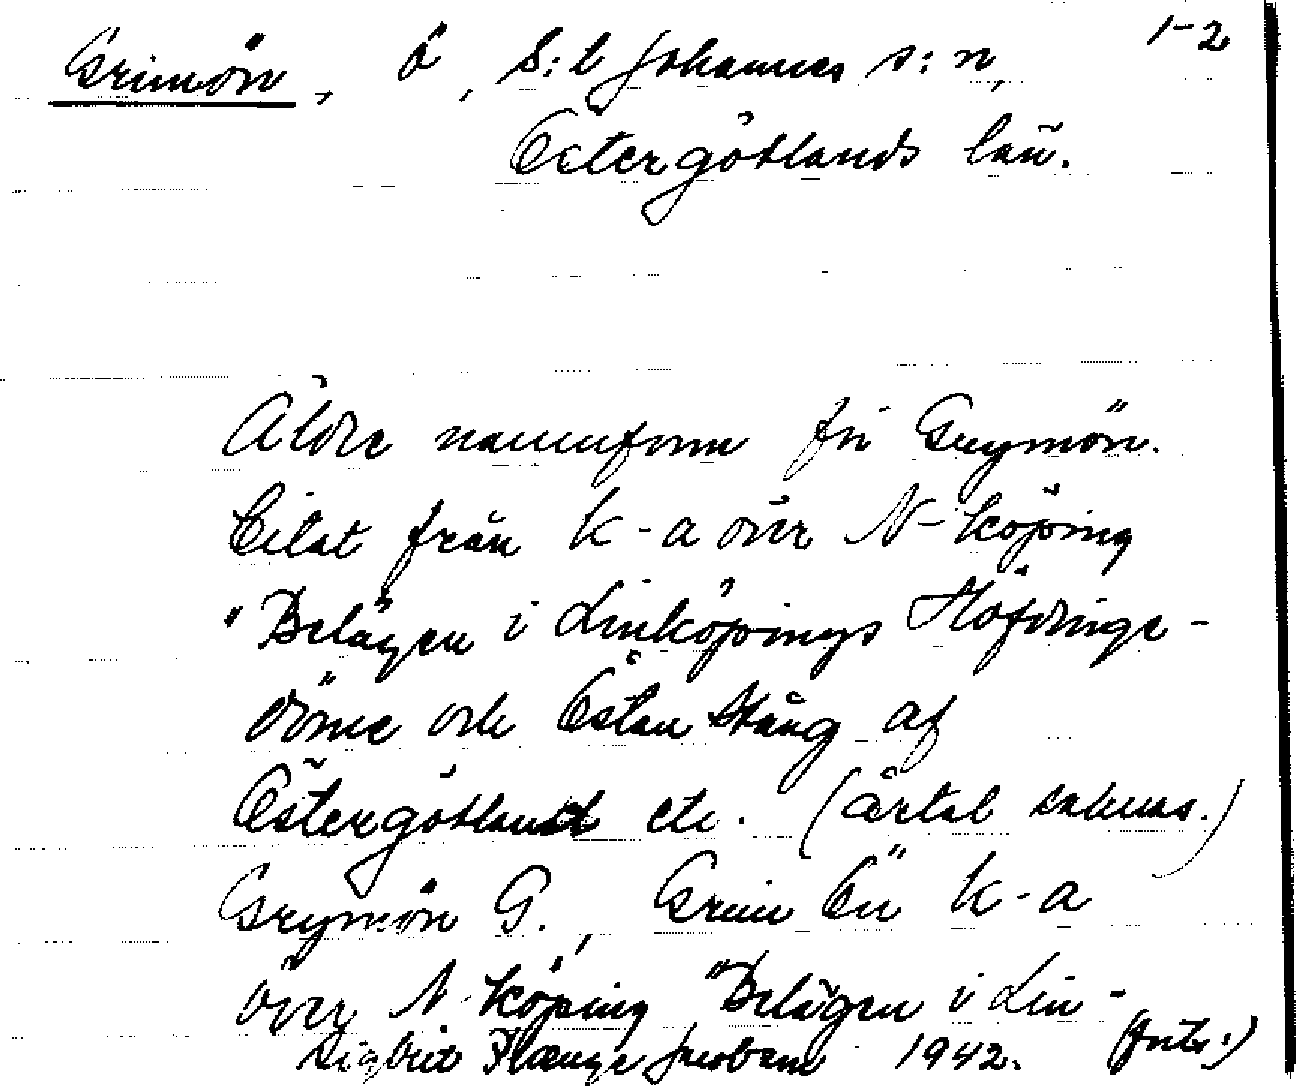 Grimön, ö, S:t Johannes s:n, 1-2
Östergötlands län.
Äldre namnform för Grymön.
Citat från k-a över N-köping
"Belägen i Linköpings Höfdinge-
döme och Östan Stång af
Östergötland etc. (årtal saknas.)
Grymön G., Grim Ön k-a
över N-köping "Belägen i Lin-
Sigbrit Plænge Jacobson 1942. (forts.)